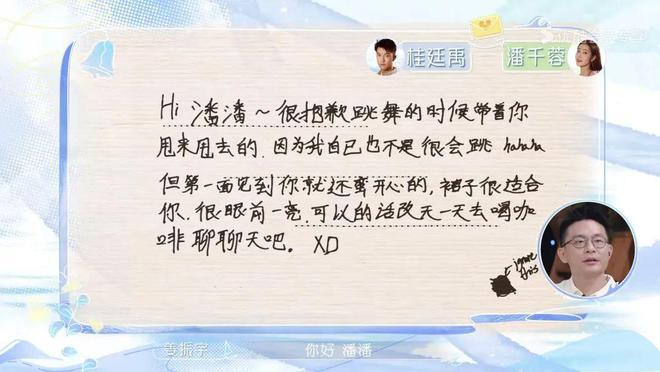 桂廷禹
潘千蓉
Hi 潘潘~很抱歉跳舞的时候带着你
甩来甩去的.因为我自己也不是很会跳 hahaha
但第一面见到你就还蛮开心的,裙子很适合
你.很眼前一亮.可以的话改天一天去喝咖
啡聊聊天吧。XD
ignore
this
姜振宇
你好 潘潘